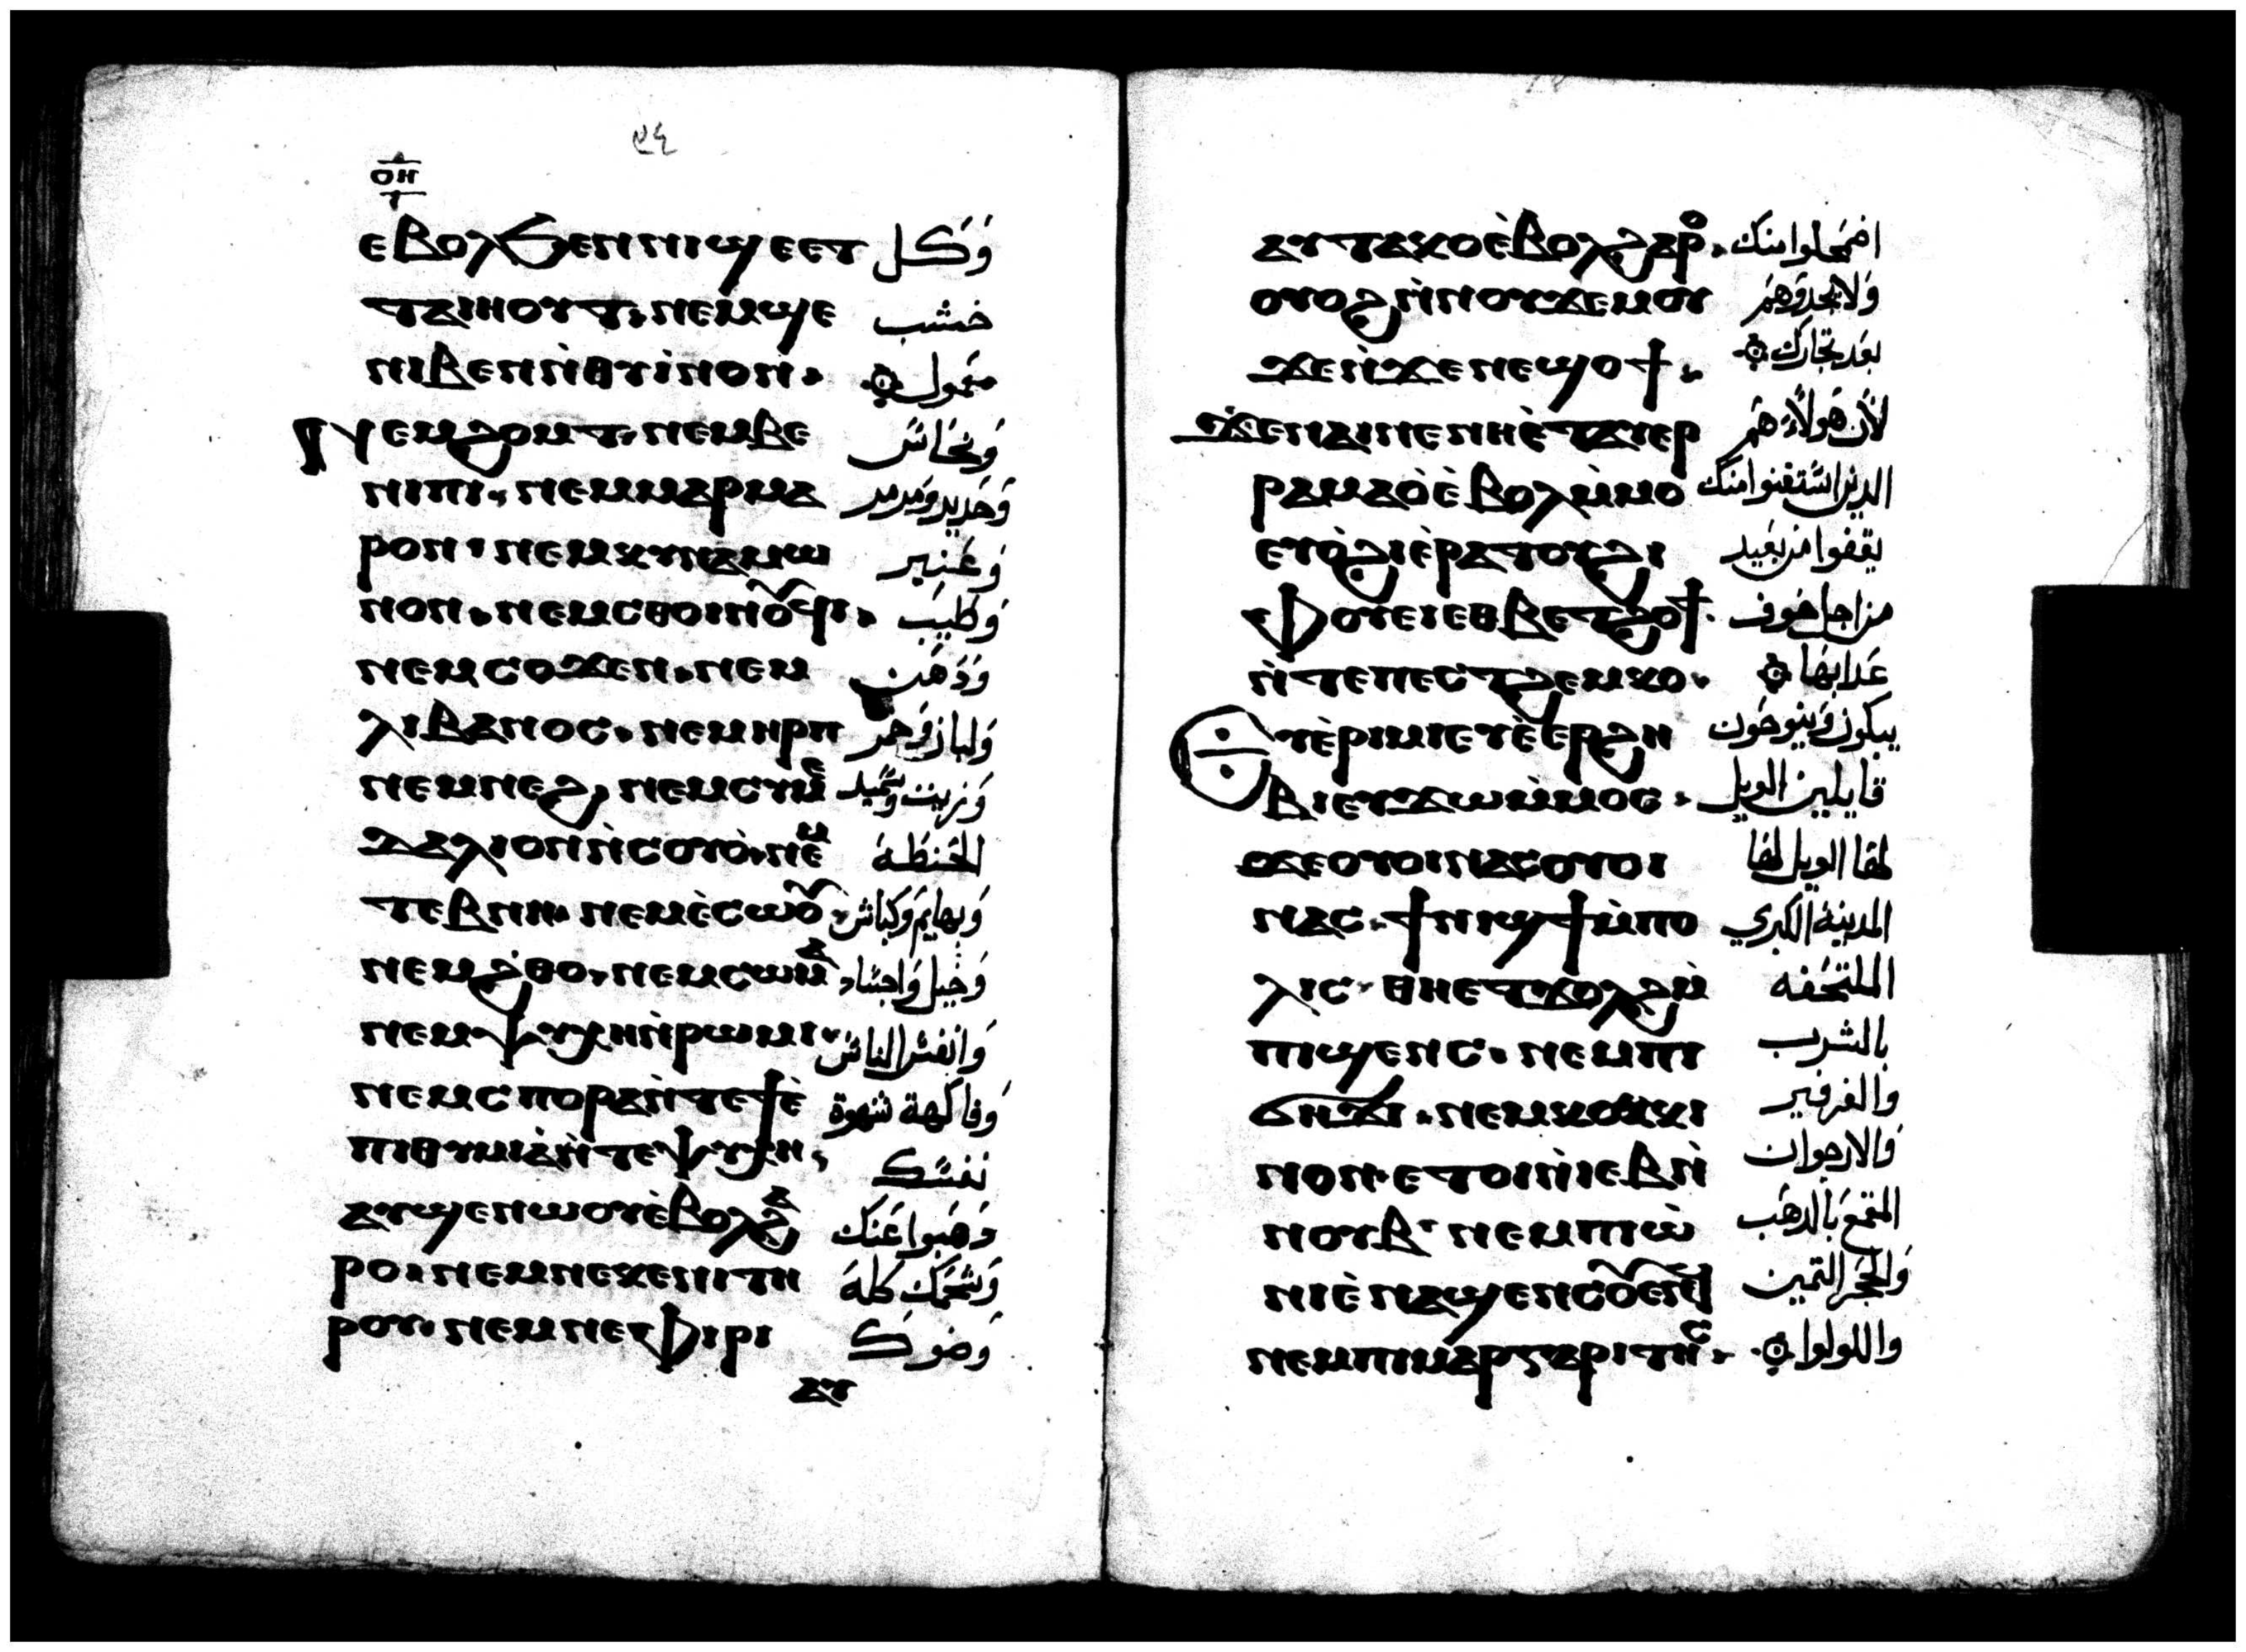 ٩٤
ⲟⲏ
ⲉⲃⲟⲗϧⲉⲛⲡⲓϣⲉⲉⲧ وَكل
ⲧⲁⲓⲏⲟⲩⲧ· ⲛⲉⲙϣⲉ خشب
ⲛⲓⲃⲉⲛⲛ̀ⲑⲩⲓ̀ⲛⲟⲛ·
ⲛⲉⲙϩⲟⲙⲧ· ⲛⲉⲙⲃⲉ وَنحَاسَ
ⲛⲓⲡⲓ· ⲛⲉⲙⲙⲁⲣⲙⲁ وَحَديد وَمرمر
ⲣⲟⲛ· ⲛⲉⲙⲕⲩⲛⲁⲙⲱ وَعَنبر
ⲛⲟⲛ· ⲛⲉⲙⲥⲑⲟⲓⲛⲟⲩϥⲓ· وَطيَب
ⲛⲉⲙⲥⲟϫⲉⲛ· ⲛⲉⲙ وَدَهَن
ⲗⲓⲃⲁⲛⲟⲥ· ⲛⲉⲙⲏⲣⲡ وَلبان وَخمر
ⲛⲉⲙⲛⲉϩ· ⲛⲉⲙⲥⲩⲙⲉ وَزيت وسَميد
ⲇⲁⲗⲓⲟⲛⲛ̀ⲥⲟⲩⲟ̀· ⲛⲉⲙ الحَنطَة
ⲧⲉⲃⲛⲏ· ⲛⲉⲙⲉ̀ⲥⲱⲟⲩ· وَبهايم وَكباش
ⲛⲉⲙϩ̀ⲑⲟ· ⲛⲉⲙⲥⲱⲙⲁ وَخيل وَاجسَاد
ⲛⲉⲙⲯⲩⲭⲏⲛ̀ⲣⲱⲙⲓ· وَانفسَ الناسَ
ⲛⲉⲙⲥⲡⲟⲣⲁⲛ̀ⲧⲉϯⲉ̀ وَفاكهة شهوة
ⲡⲓⲑⲩⲙⲓⲁ̀ⲛ̀ⲧⲉⲯⲩⲭⲏ· نفسَك
ⲁⲩϣⲉⲛⲱⲟⲩⲉ̀ⲃⲟⲗϩⲁ دهَبوا عَنك
ⲣⲟ· ⲛⲉⲙⲛⲉⲕⲉⲛⲓⲧⲏ وَشحمَك كلهَ
ⲣⲟⲩ· ⲛⲉⲙⲛⲉⲧⲫⲓⲣⲓ وَضوك
ⲁⲩ
ⲁⲩⲧⲁⲕⲟⲉ̀ⲃⲟⲗϩⲁⲣⲟ· اضمَحلوا منك
ⲟⲩⲟϩⲛ̀ⲛⲟⲩϫⲉⲙⲟⲩ وَلا يجدوهَم
ϫⲉⲛ̀ϫⲉⲛⲉϣⲟϯ· بعَد تجارك
ϫⲉⲛⲁⲓⲛⲉⲛⲏⲉ̀ⲧⲁⲓⲉⲣ لأن هَولاء هَم
ⲣⲁⲙⲁⲟ̀ⲉ̀ⲃⲟⲗⲙ̀ⲙⲟ الدين اسَتغنوا منك
ⲉⲩⲟ̀ϩⲓⲉ̀ⲣⲁⲧⲟⲩϩⲓ يقفوا من بعَيد
ⲫⲟⲩⲉⲓⲉⲑⲃⲉⲧϩⲟϯ· من اجل خوف
ⲛ̀ⲧⲉⲡⲉⲥⲧϩⲉⲙⲕⲟ· عَدابهَا
ⲩⲉ̀ⲣⲓⲙⲓⲉⲩⲉ̀ⲉⲣϩⲏ يبكون وَينوحَون
ⲃⲓⲉⲩϫⲱⲙ̀ⲙⲟⲥ· قايلين الويل
ϫⲉⲟⲩⲟⲓⲛⲁⲥⲟⲩⲟⲓ لهَا الويل لهَا
ⲛⲁⲥ· ϯⲛⲓϣϯⲙ̀ⲡⲟ المدينة الكبري
ⲗⲓⲥ· ⲑⲏⲉⲧϫⲟⲗϩⲙ̀ الملتحَفه
ⲡⲓϣⲉⲛⲥ· ⲛⲉⲙⲡⲓ بالشرب
ϭⲏϫⲓ· ⲛⲉⲙⲕⲟⲕⲕⲓ والفرفير
ⲛⲟⲛ· ⲉⲧⲟⲓⲛ̀ⲓⲉⲃⲛ̀ وَالارجوان
ⲛⲟⲩⲃ· ⲛⲉⲙⲡⲓⲱ̀ المقمعَ بالدهَب
ⲛⲓⲉ̀ⲛⲁϣⲉⲛⲥⲟⲩⲉⲛϥ وَالحَجَر التمين
ⲛⲉⲙⲡⲓⲙⲁⲣⲅⲁⲣⲓⲧⲏⲥ· واللولوا